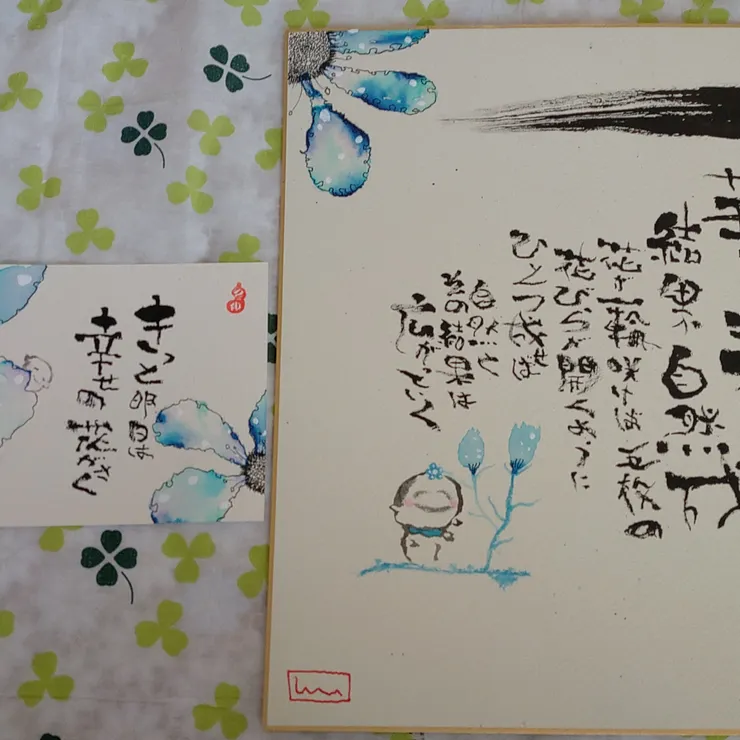 きっと明日は
幸せの花が咲く
結果が自然
花が一輪咲けば五枚の
花びらが開くように
ひとつ成せば
自然と
その結果は
広がっていく